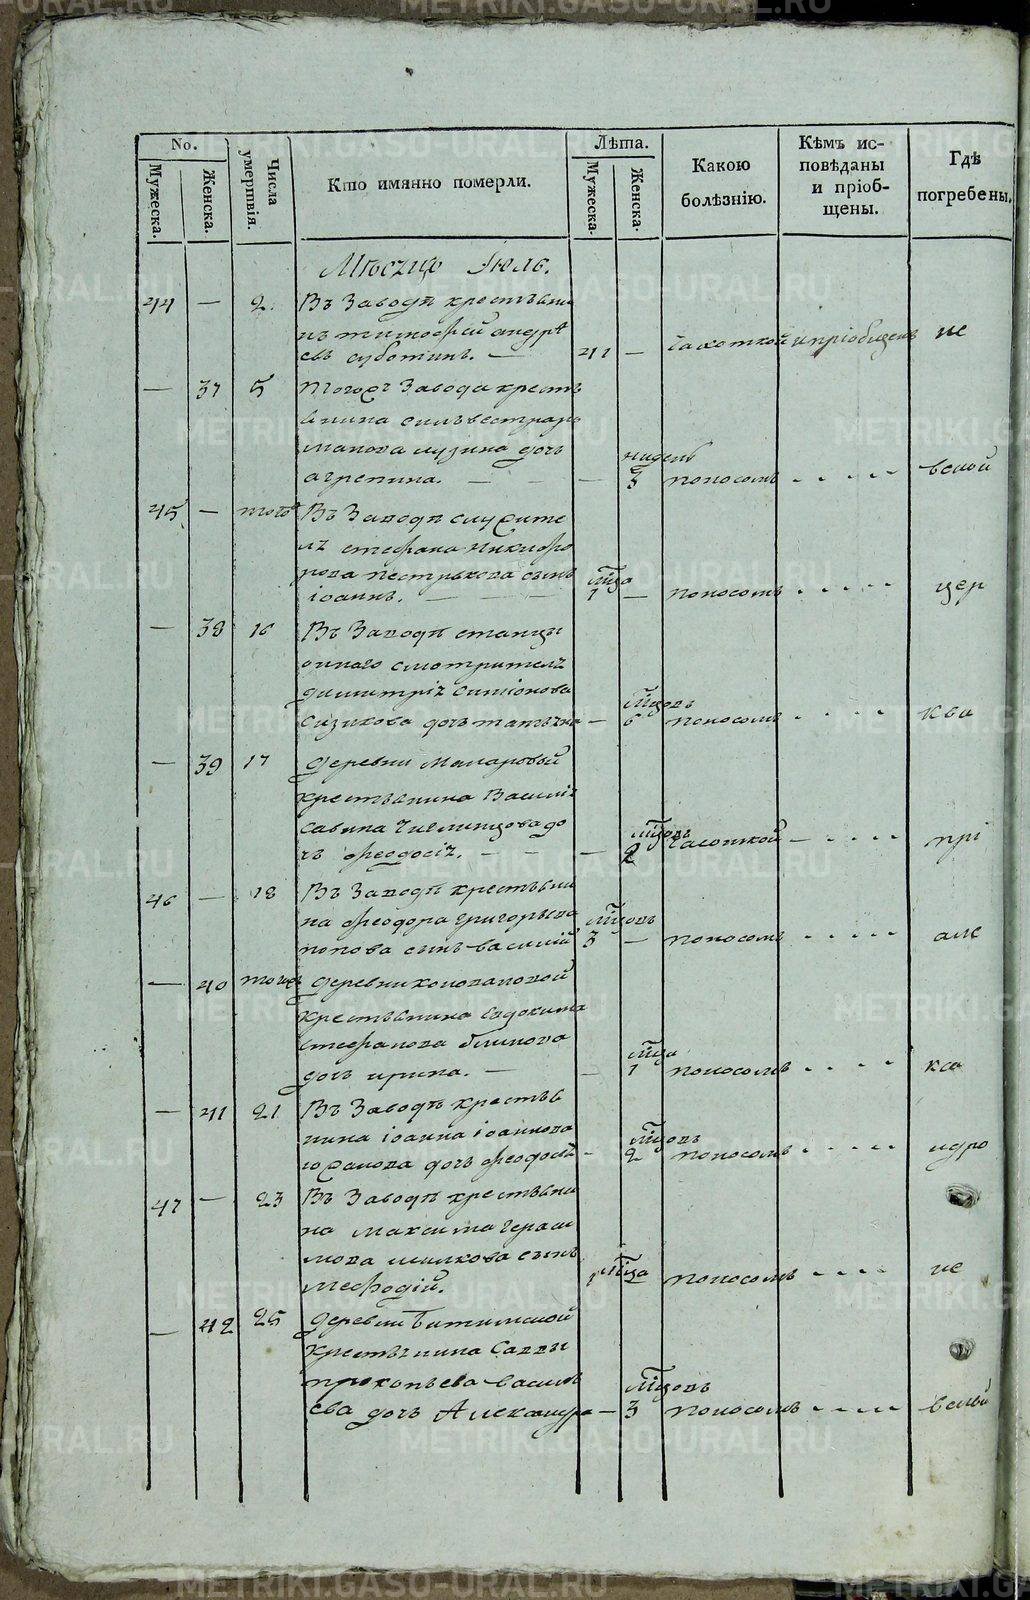 No.
Мужеска.
Женска.
Числа умертвія.
Кто имянно померли.
Лѣта.
Мужеска.
Женска.
Какою болѣзнію.
Кѣмъ исповѣданы и пріобщены.
Гдѣ погребены.
Мѣсяцъ Іюль.
44 — 2. Въ Заводѣ крестьяни
нъ тимофей андрѣ
евъ суботинъ. — 41 — чахоткой и пріобщенъ не
— 37 5 тогожъ Завода кресть
янина сильвестра ро
манова лузина дочь
агрепина. — — — недель 3 поносомъ . . . . . вской
45. — тогожъ Въ Заводѣ служите
ля стефана никифо
рова пестрькова сынъ
іоаннъ. — — — мца 1 — поносомъ . . . . цер
— 38 16 Въ Заводѣ станцы
оннаго смотрителя
димитрія симіонова
сизикова дочь татьяна — мцовъ 6 поносомъ . . . . ква
— 39 17 деревни макаровый
крестьянина Василія
савина дочь феодосія. — — — мцовъ 2 часоткой — . . . . прі
46 — 18 Въ Заводѣ крестьяни
на феодора григорьева
попова сынъ василій мцовъ 3 — поносомъ . . . . . але
— 40 тогожъ деревни коноваловой
крестьянина евдокима
стефанова блинова
дочь ирина. — — мца 1 поносомъ . . . . кса
— 41 21 Въ Заводѣ крестья
нина іоанна іоаннова
дочь феодосья — мцовъ 2 поносомъ . . . . ндро
47 — 23 Въ Заводѣ крестьяни
на максима гераси
мова шилкова сынъ
мефодій. 1 мца — поносомъ . . . . не
— 42 25 деревни битимской
крестьянина Саввы
прокопьева василь
ева дочь Александра — мцовъ 3 поносомъ . . . . . вской
METRIKI.GASO-URAL.RU